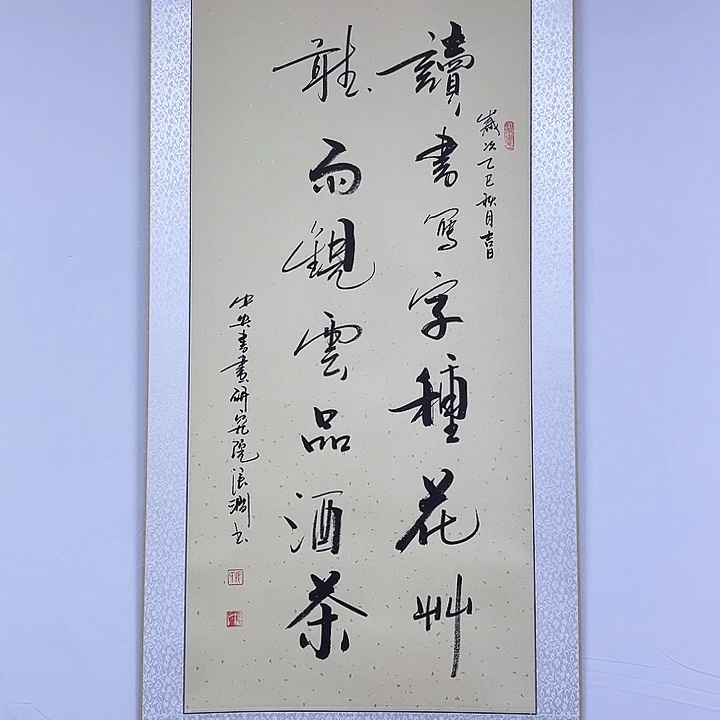 讀書寫字種花艸
聽雨觀雲品酒茶
歲次乙巳秋月吉日
中央書畫研究院浪淘书